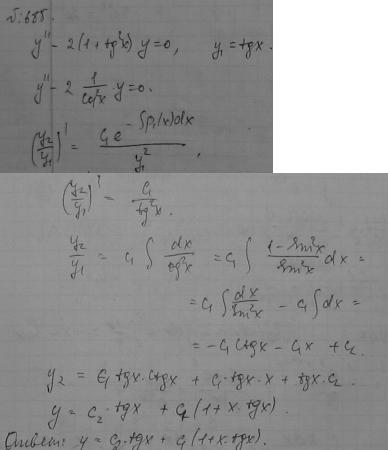 № 688.
y'' - 2(1+tg²x) y = 0, y₁ = tgx.
y'' - 2 1/cos²x · y = 0.
(y₂/y₁)' = C₁e^(-∫p₁(x)dx) / y₁²,
(y₂/y₁)' = C₁/tg²x.
y₂/y₁ = C₁ ∫ dx/tg²x = C₁ ∫ (1 - sin²x)/sin²x dx =
= C₁ ∫ dx/sin²x - C₁ ∫ dx =
= -C₁ ctgx - C₁x + C₂.
y₂ = C₁ tgx·ctgx + C₁·tgx·x + tgx·C₂.
y = C₂·tgx + C₁(1 + x·tgx).
Ответ: y = C₂·tgx + C₁(1+x·tgx).